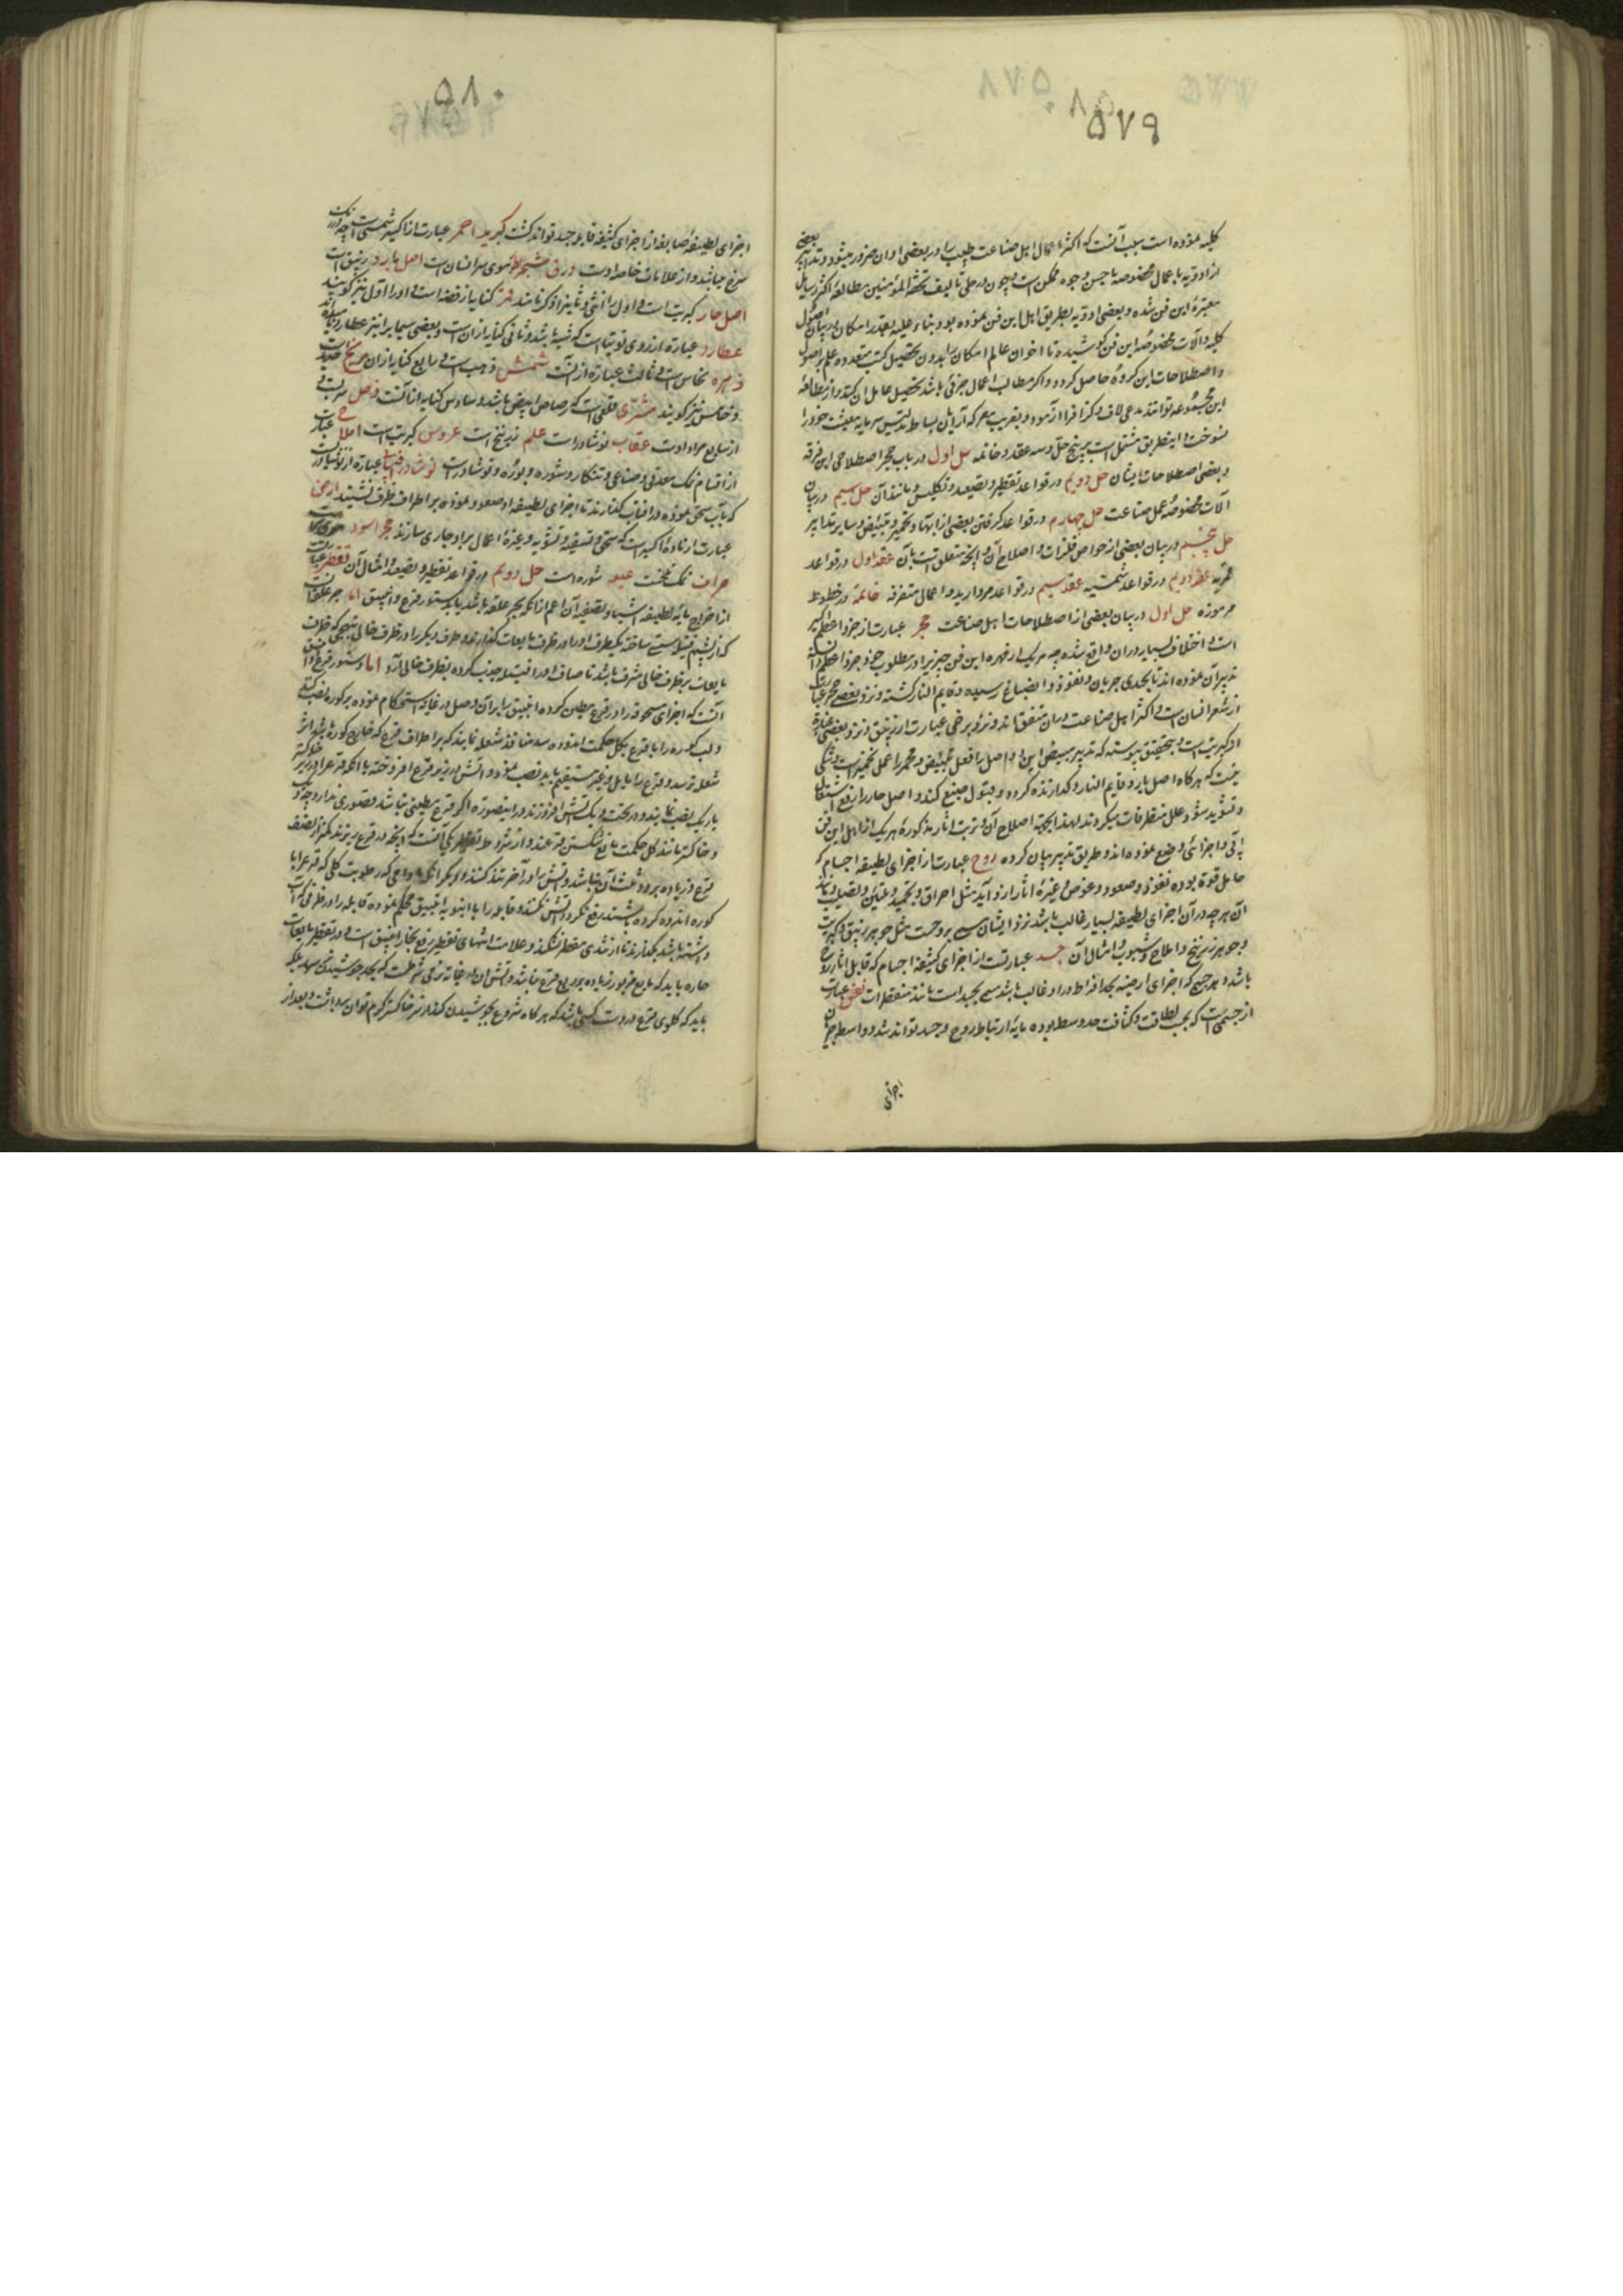 ۵۷۹
کلیه نموده است سبب آنست که اکثر اعمال اهل صناعت طبیب را در بعضی اوان ضرور میشود و تدابیر بعضی
از ادویه باعمال مخصوصه باحسن وجوه ممکن است و چون در حلی تالیف تحفة المؤمنین مطالعه اکثر رسایل
معتبره این فن شده و بعضی ادویه بطریق اهل این فن نموده بود بناء علیه بقدر امکان در بیان اصول
کلیه و آلات مخصوصه این فن کوشیده تا اخوان عالم امکان را بدون تحصیل کتب متعدده علم باصول
و اصطلاحات این گروه حاصل گردد و اگر مطالب اعمال جزئی باشد تحصیل عامل آن کند و از مطالعه
این مجموعه توانند مدعی لاف و گزاف را آزمود و بفریب معرکه آرایان بساط تلبیس سرمایه معیشت خود را
نسوخت و این طریق مشتمل است بر پنج حل و سه عقد و خاتمه حل اول در باب حجر اصطلاحی این فرقه
و بعضی اصطلاحات ایشان حل دویم در قواعد تقطیر و تصعید و تکلیس و مانند آن حل سیم در بیان
آلات مخصوصه عمل صناعت حل چهارم در قواعد گرفتن بعضی از ابها و تحمیر و تبییض و سایر تدابیر
حل پنجم در بیان بعضی از خواص فلزات و اصلاح آن و آنچه متعلق است بآن عقد اول در قواعد
قمریه عقد دویم در قواعد شمسیه عقد سیم در قواعد مروارید و اعمال متفرقه خاتمه در خطوط
مرموزه حل اول در بیان بعضی از اصطلاحات اهل صناعت حجر عبارت از جزو اعظم اکسیر
است و اختلاف بسیار در آن واقع شده چه هر یک از مهره این فن چیزیرا در مطلوب خود جزو اعظم دانسته
تدبیر آن نموده اند تا بحدی جریان و نفوذ و انصباغ رسیده و قایم النار گشته و نزد بعضی حجر عبارت
از شعر انسان است و اکثر اهل صناعت در آن متفق اند و نزد برخی عبارت از زیبق و نزد بعضی عبارة
از کبریت است و بتحقیق پیوسته که تدبیر مبیض این دو اصل را فعل تبییض و محمر را عمل تحمیر است و شکی
نیست که هرگاه اصل بارد قایم النار و گدازنده گردد و قبول صبغ کند و اصل حار را رفع اشتعال
و تسوید شود علل متطرقات میگردند لهذا بجهة اصلاح آن و ترتب آثار مذکوره هر یک از اهل این فن
رائی و اجزائی وضع نموده اند و طریق تدبیر بیان کرده روح عبارت از اجزای لطیفه اجسام که
حامل قوة بوده نفوذ و صعود و غوص و غیره آثار از او آید مثل احراق و تجمید و تلیین و تصلیب مانند
آن هر چه در آن اجزای لطیفه بسیار غالب باشد نزد ایشان مسمی بروحست مثل جوهر زیبق و کبریت
و جوهر زرنیخ و املاح و شبوب و امثال آن جسد عبارتست از اجزای کثیفه اجسام که قابل آثار روح
باشد و هر جسمی که اجزای ارضیه بحد افراط در او غالب باشد مسمی بجسد است مانند متطرقات نفس عبارت
از جسمی است که بحسب لطافت و کثافت حد وسط بوده مایهٔ ارتباط روح و جسد تواند شد و واسطه جریان
اجزای
۵۸۰
اجزای لطیفه صابغه از اجزای کثیفه قابله جسد تواند گشت کبریت احمر عبارت از اکسیر شمسی است چه در رنگ
سرخ میباشد و از علامات خاصه اوست ورق شجر طور موی سر انسان است اصل بارد زیبق است
اصل حار کبریت است و اول را انثی و ثانیرا ذکر نامند قمر کنایه از فضه است و او را اول نیز گویند
عطارد عبارة از روی توتیا است که شبه باشد و ثانی کنایه از آن است و بعضی سیماب را نیز عطارد نامیده اند
زهره نحاس است و ثالث عبارة از آنست شمس ذهب است و رابع کنایه از آن مریخ حدید است
و خامس نیز گویند مشتری قلعی است که رصاص ابیض باشد و سادس کنایه از آنست زحل سرب و
از سابع مراد اوست عقاب نوشادر است علم زرنیخ است عروس کبریت است املاح عبارت
از اقسام نمک معدنی و صناعی و تنکار و شوره و بوره و نوشادر است نوشادر عبارة از نوشادریست
که بآب سحق نموده در آفتاب گذارند تا اجزای لطیفه او صعود نموده بر اطراف ظرف نشیند ارض
عبارت از ماده اکسیر است که سحق و تسقیه و تشویه و غیره اعمال بر او جاری سازند حجر اسود موی
حراف نمک تلخست شوره است حل دویم در قواعد تقطیر و تصعید و امثال آن تقطیر عبارت
از اخراج مایه لطیفه اشیا و تصفیه آن اعم از آنکه بجر علقه باشد یا بدستور قرع و انبیق اما جر علقه آنست
که از پشم فتیله سستی ساخته یکطرف او را در ظرف مایعات گذارند و طرف دیگر را در ظرف خالی بنهجی که ظرف
مایعات بر ظرف خالی مشرف باشد تا صاف او را فتیله جذب کرده بظرف خالی آرد اما دستور قرع و انبیق
آنست که اجزای مسحوقه را در قرع مطین کرده انبیق را بر آن وصل در غایة استحکام نموده بر کوره نصب کنند
و لب کوره را با قرع بگل حکمت اندوده سه منافذ شعله نمایند که بر اطراف قرع که خارج کوره باشد اثر
شعله نرسد و قرع را مایل و غیر مستقیم باید نصب نمود و آتش در زیر قرع افروخته یا آنکه قرع را در زیر خاکستر
باریک نصب نمایند و در تحت دیگ آتش افروزند در اینصورة اگر قرع مطین نباشد قصوری ندارد چه ریگ
و خاکستر مانند گل حکمت مانع شکستن قرعند و از شروط تقطیر یکی آنست که آنچه در قرع ریزند کمتر از نصف
قرع و زیاده بر دو ثلث آن نباشد و آتش را در آخر تند کنند و دیگر آنکه مادامی که رطوبت گلی که قرع را با
کوره اندوده کرده باشند رفع نگردد آتش نکنند و قابله را با انبوبه انبیق محکم نموده قابله را در ظرفی که آب
داشته باشد بگذارند تا از تندی مقطر نشکند و علامت انتهای تقطیر رفع بخار انبیق است و در تقطیر مایعات
حاره باید که مایع مزبور زیاده بر ربع قرع نباشد و آتش آن در غایة نرمی شرطست که بحد جوشیدن نرسد بلکه
باید که گلوی قرع در دست کسی باشد که هرگاه شروع بجوشیدن کند از سر خاکستر گرم توان برداشت و بعد از